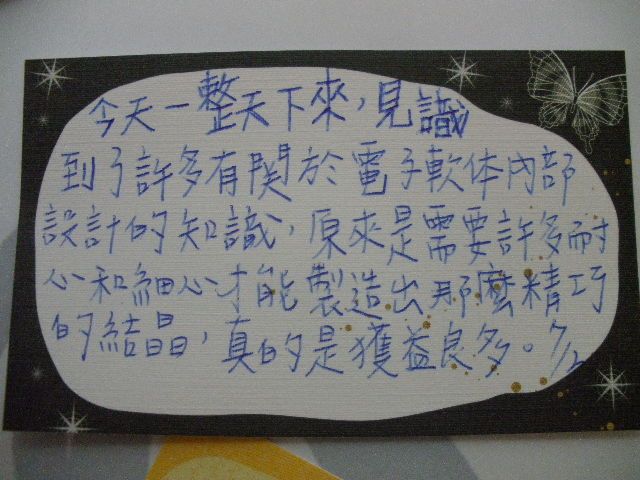 今天一整天下來，見識
到了許多有關於電子軟体內部
設計的知識，原來是需要許多耐
心和細心才能製造出那麼精巧
的結晶，真的是獲益良多。7/2